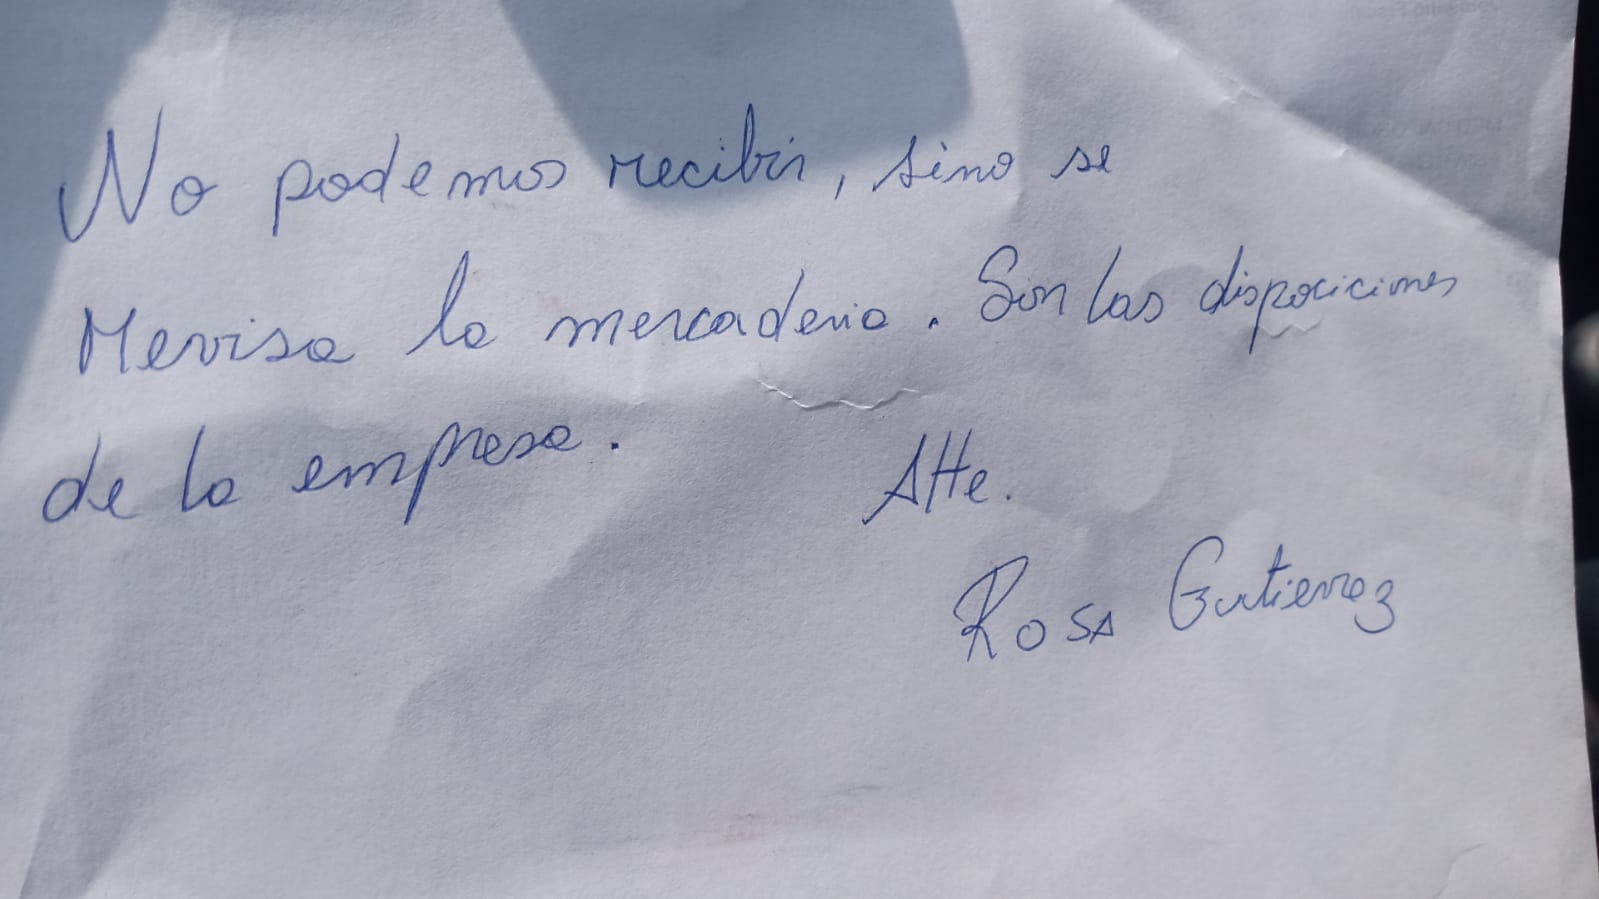 No podemos recibir, sino se
revisa la mercaderia. Son las disposiciones
de la empresa.
Atte.
Rosa Gutierrez